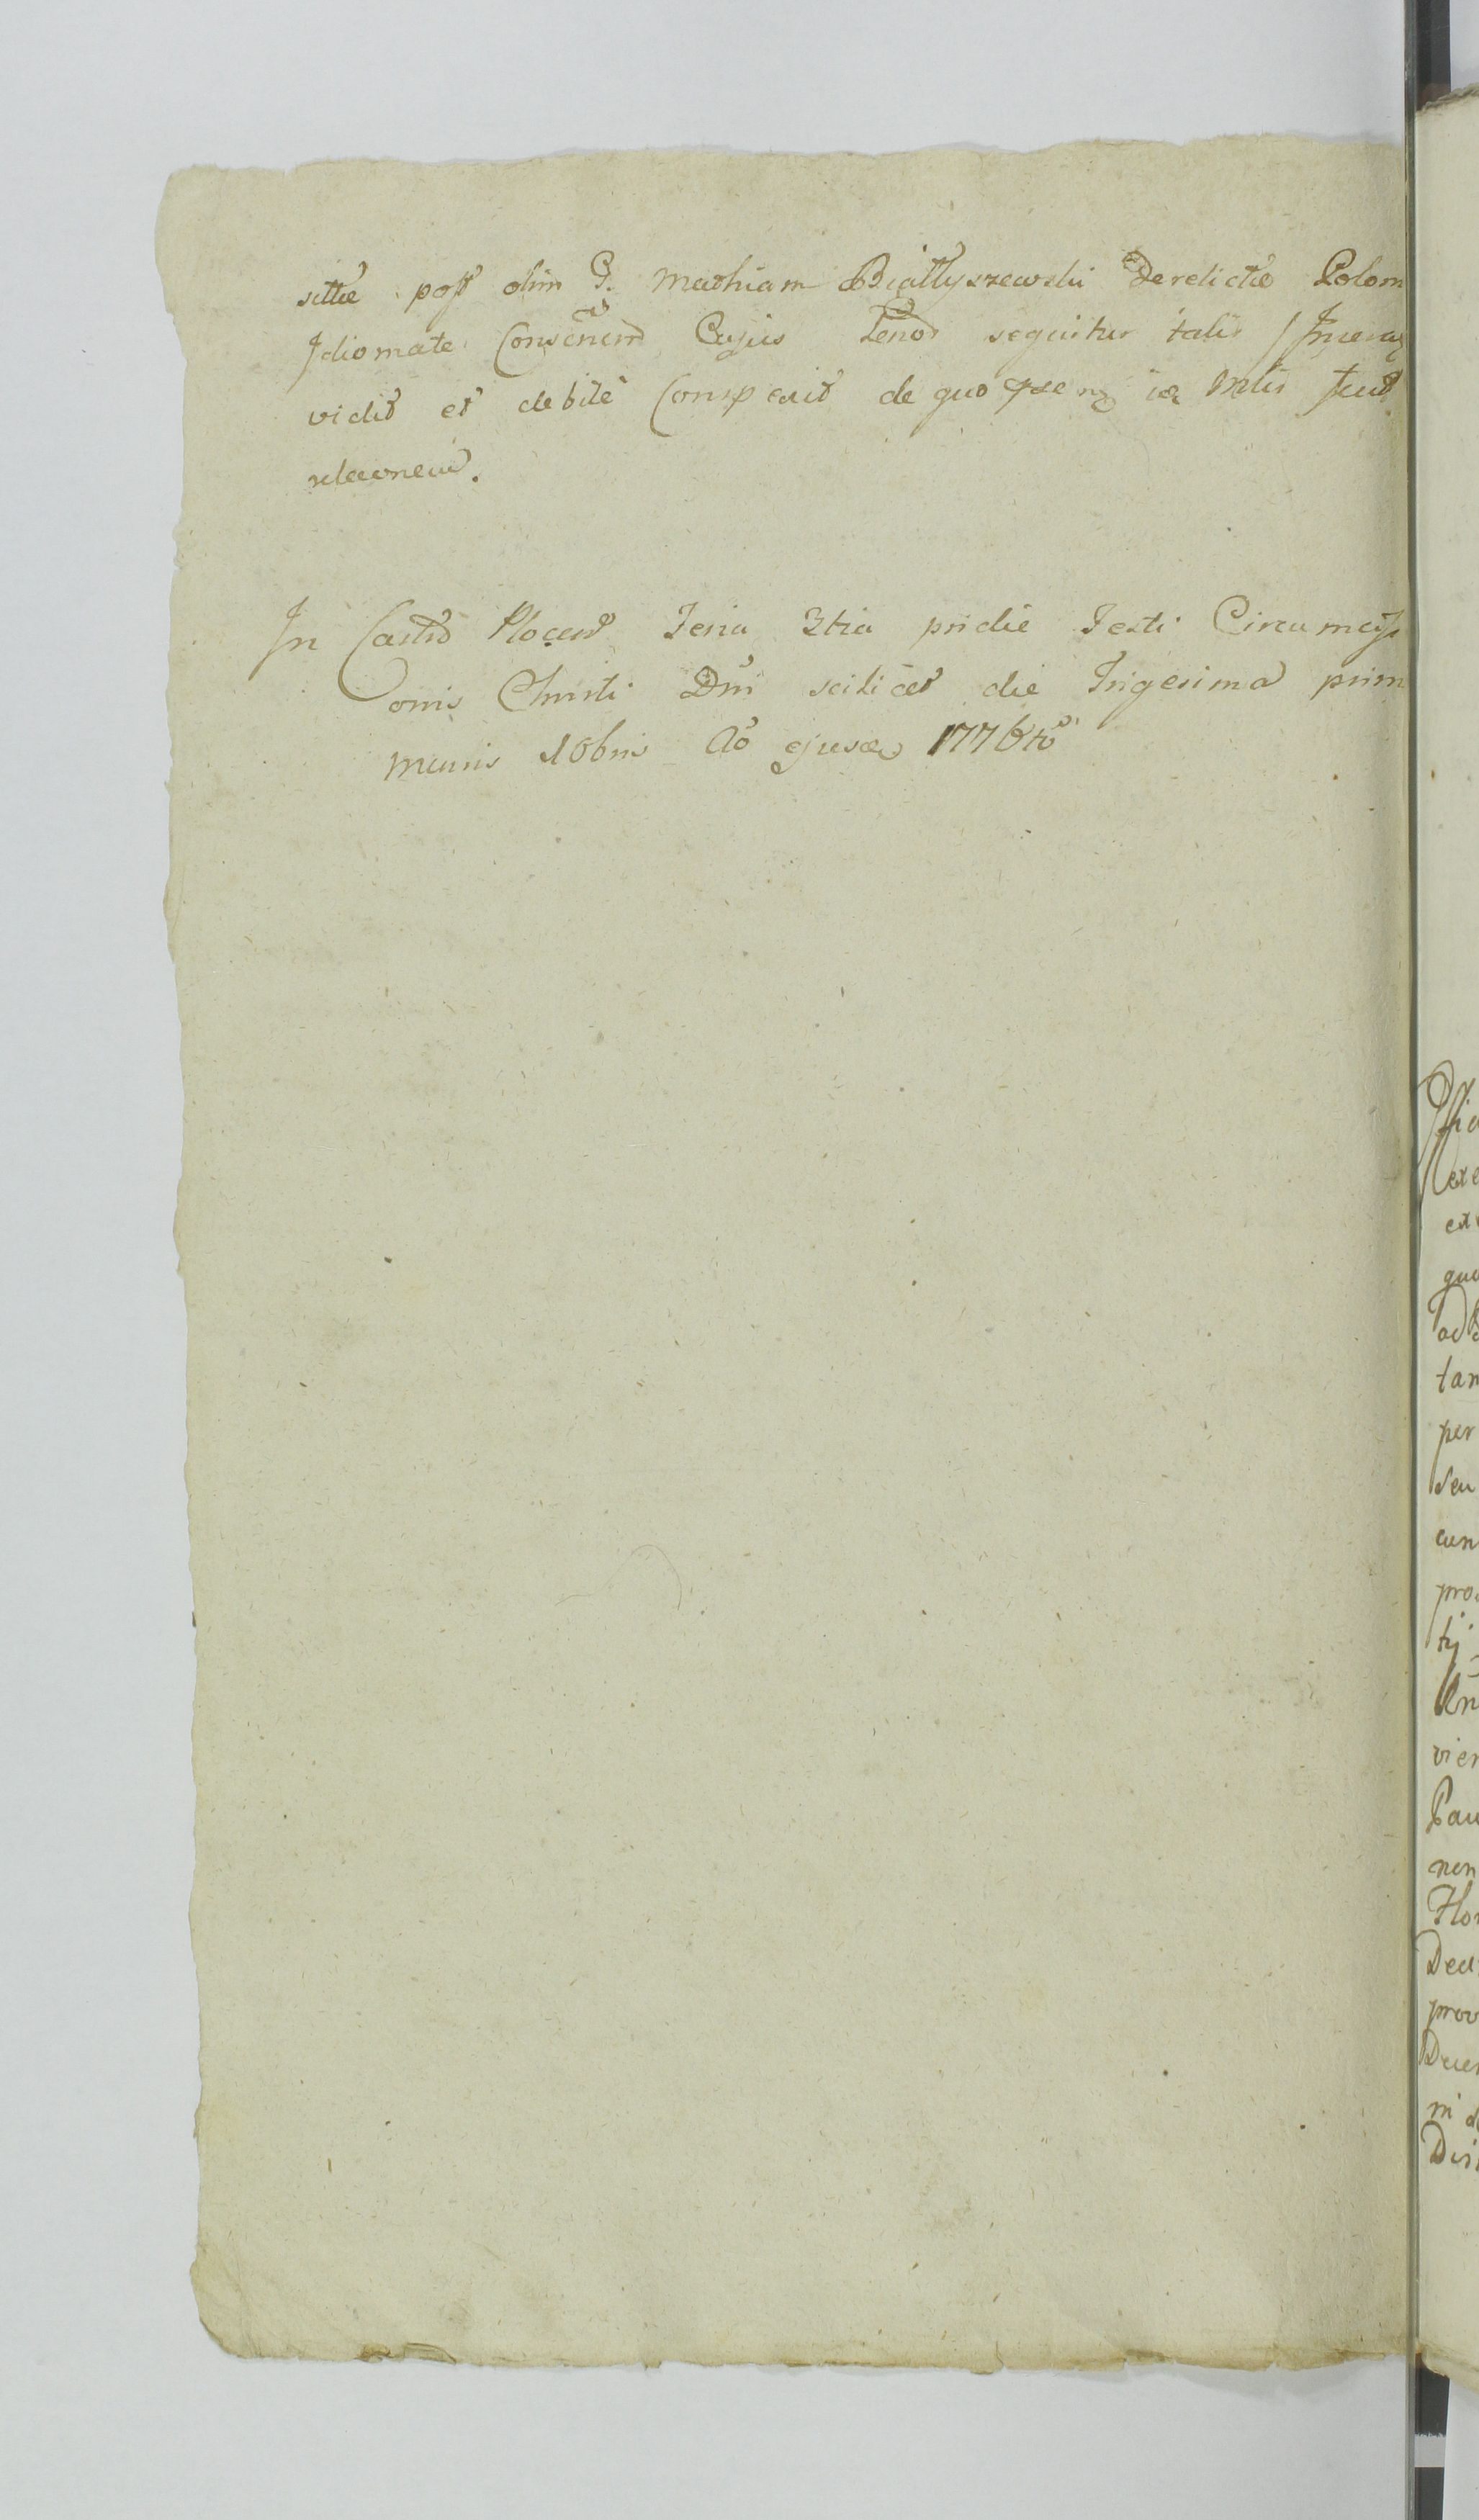 sittæ post olim G. Mathiam Białłyszewski derelictæ Polon
Idiomate Conscriend Cujus Tenor sequitur talis / Inseraz
vidit et debite Comperit de quo præmz in Mtis fecit
relaonem.
In Castro Plocens Feria 3tia pridie Festi Circumciss
onis Christi Dni scilicet die Trigesima prim
mensis Xbris Ao ejusd 1776to
Offi
exe
ext
quo
ad
tan
per
seu
cun
pro
tij
vien
Pau
nen
Flor
Dec
prov
Decer
ni d
Dis